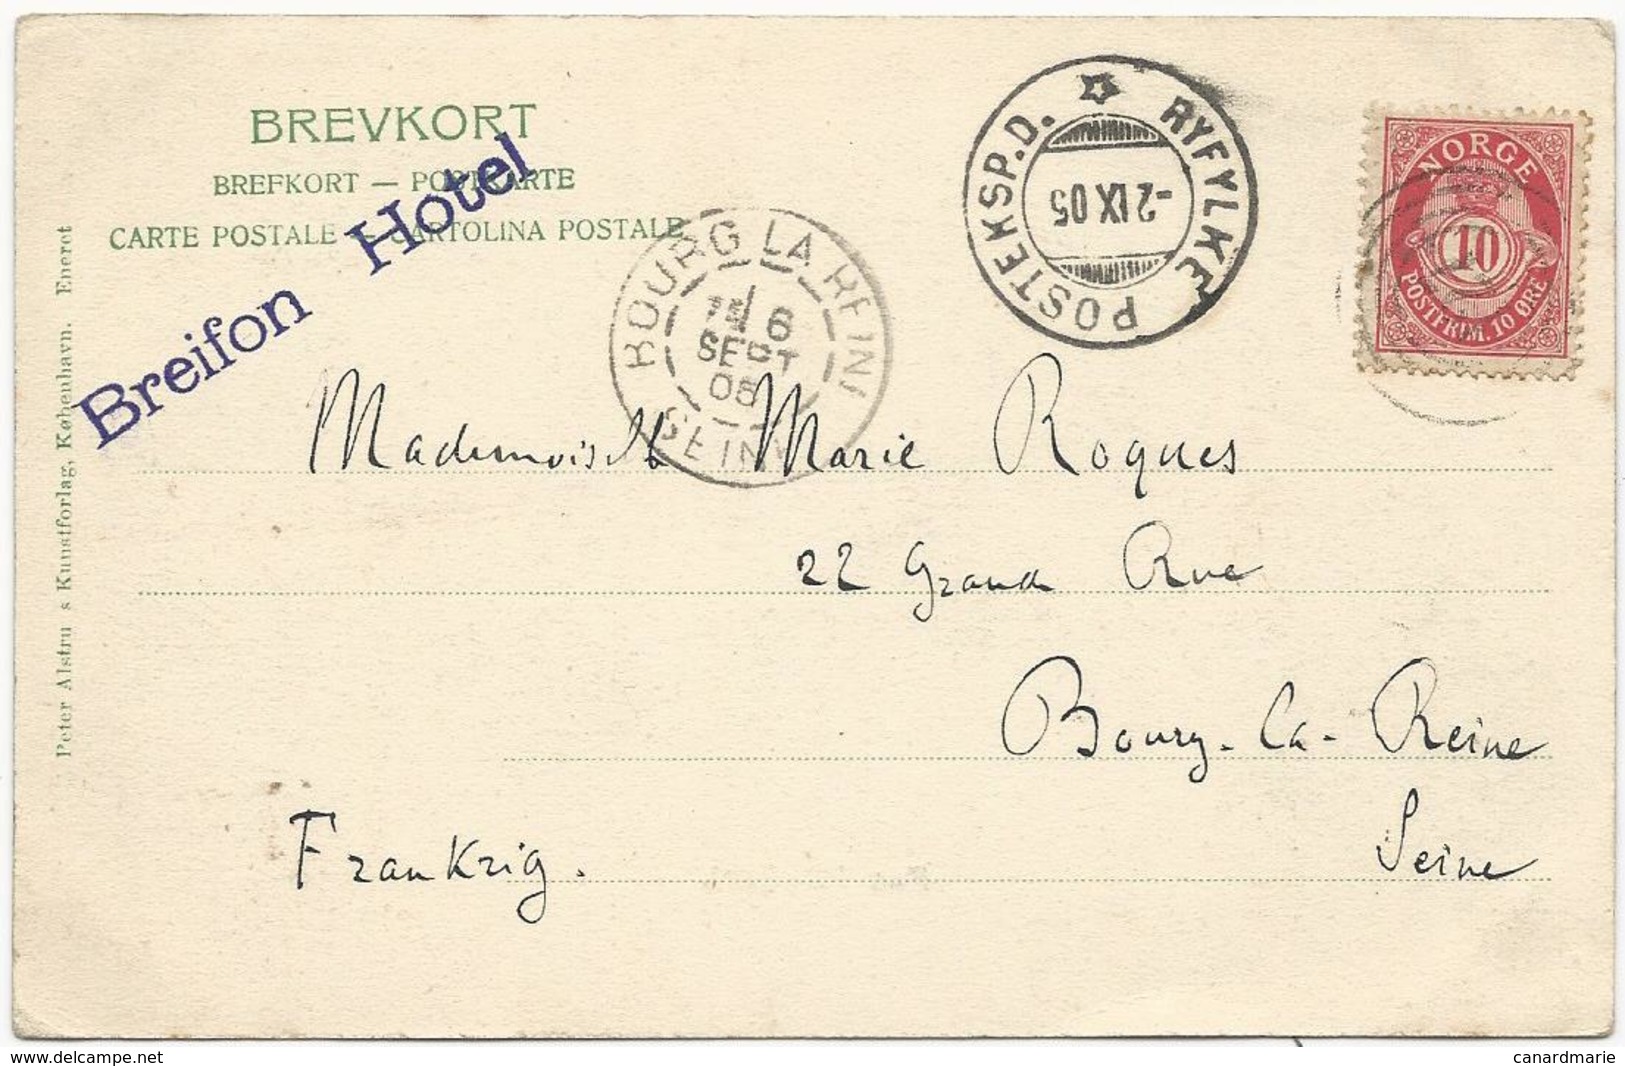 BREVKORT
BREFKORT — POSTKARTE
CARTE POSTALE – CARTOLINA POSTALE
Breifon Hotel
Peter Alstru s Kunstforlag, København. Eneret
BOURG LA REINE
6
SEPT
05
SEINE
POSTEKSP.D. RYFYLKE
-2 IX 05
NORGE
10
POSTFRIM. 10 ØRE
Mademoiselle Marie Roques
22 Grande Rue
Bourg-la-Reine
Seine
Frankrig.
www.delcampe.net
canardmarie